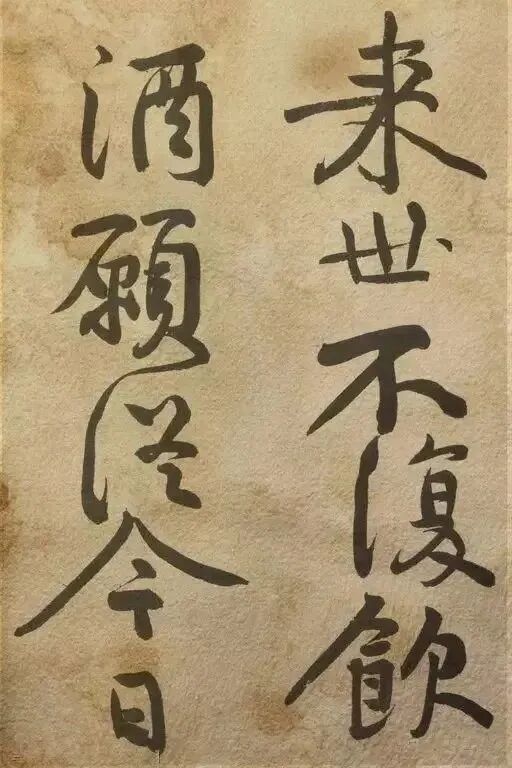 来世不復飲
酒願從今日